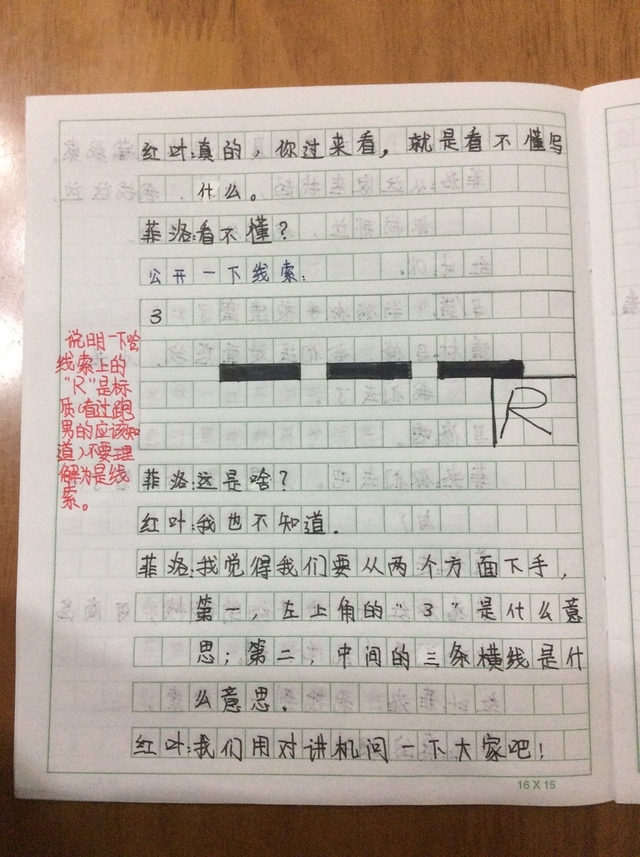 红叶:真的，你过来看，就是看不懂写
什么。
菲洛:看不懂？
公开一下线索:
3
R
说明一下啥
线索上的
“R”是标
质(看过跑
男的应该知
道)不要理
解为是线
索。
菲洛:这是啥？
红叶:我也不知道.
菲洛:我觉得我们要从两个方面下手，
第一，左上角的“3”是什么意
思；第二，中间的三条横线是什
么意思.
红叶:我们用对讲机问一下大家吧！
16×15